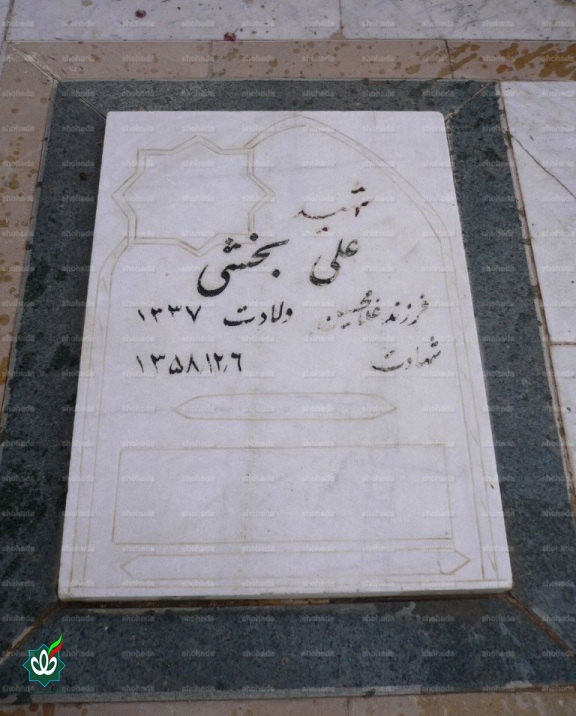 شهید
علی بخشی
فرزند غلامحسین ولادت ۱۳۳۷
شهادت ۱۳۵۸/۱۲/۶